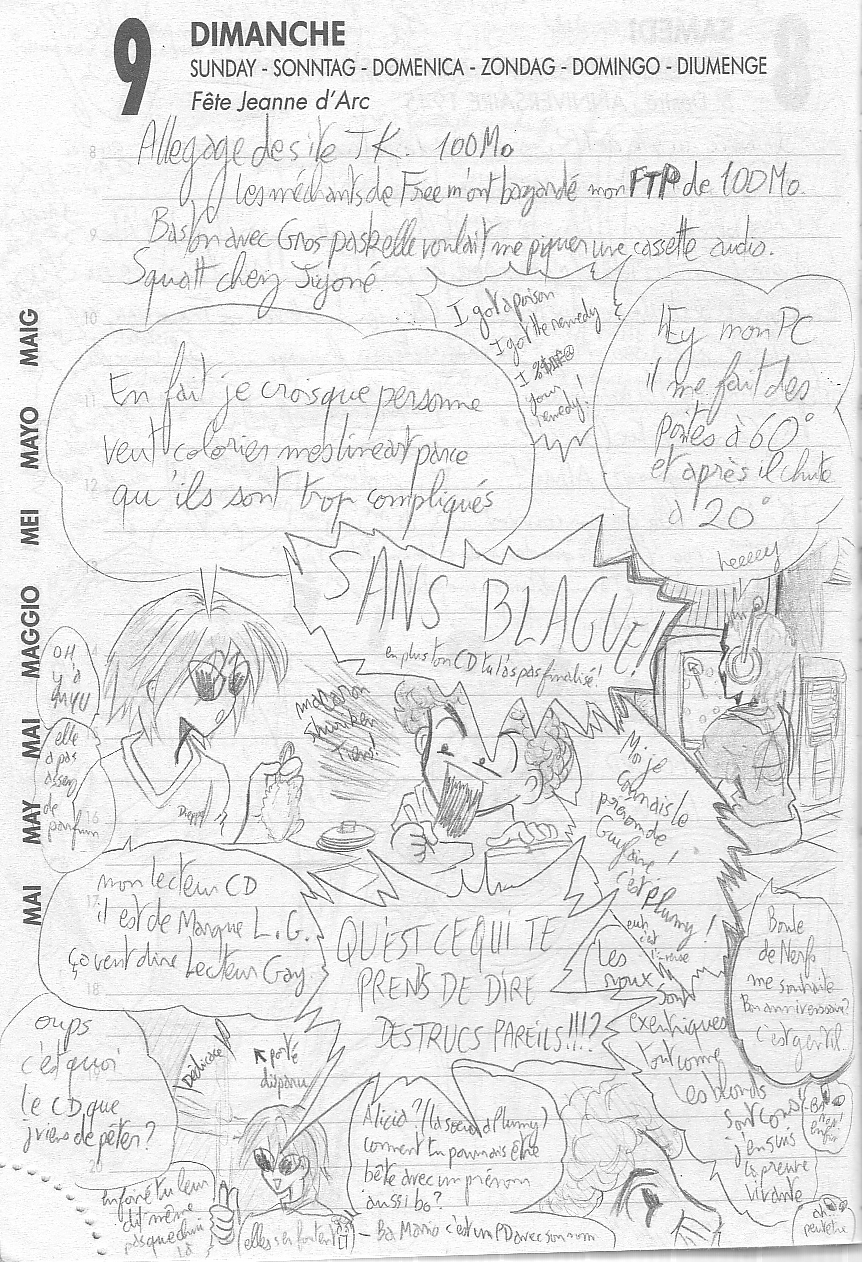 9 DIMANCHE
SUNDAY - SONNTAG - DOMENICA - ZONDAG - DOMINGO - DIUMENGE
Fête Jeanne d'Arc
8
Allegage de site T.K. 100Mo
Les méchants de Free m'ont bazardé mon FTP de 100Mo.
9
Baston avec Gros pask elle voulait me piquer une cassette audio.
Squatt chez
10
I got a poison
I got the remedy
I
your
remedy!
hEy mon PC
il me fait des
pointes à 60°
et après il chute
à 20°
heeeey
En fait je crois que personne
veut colorier mes lineart parce
qu'ils sont trop compliqués
11
12
MAI MAY MAI MAGGIO MEI MAYO MAIG
SANS BLAGUE!
en plus ton CD tu l'as pas finalisé!
OH
y'a
elle
a pas
assez
de
parfum
macaron
shuriken
tiens!
Dieppe
Moi je
connais le
prénom de
Guyfaine!
c'est
plumy!
16
17
18
mon lecteur CD
il est de Marque L.G.
ça veut dire Lecteur Gay.
QU'EST CE QUI TE
PRENDS DE DIRE
DES TRUCS PAREILS!!!?
euh
c'est
l'inverse
Les
roux
sont
exentriques
tout comme
les blonds
sont cons!
j'en suis
la preuve
vivante
Boule
de Nerfs
me souhaite
Bon anniversaire?
c'est gentil.
oups
c'est quoi
le CD que
j'viens de péter?
Dédicace
porté
disparu
Alicia? (la soeur à Plumy)
comment tu pourrais être
bête avec un prénom
aussi bo?
- Ba Mario c'est un PD avec son nom
20
enfoiré tu leur
dit même
pas que
là
elles s'en foutent
ah
peut etre